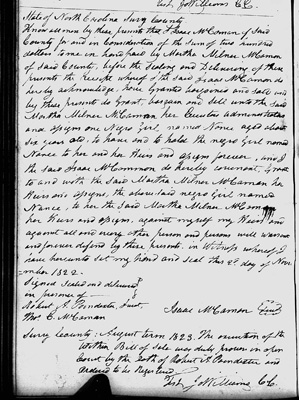 Test. Jo Williams CC.
State of North Carolina Surry County
Know all men by these presents that I Isaac McCamon of Said
County for and in Consideration of the Sum of two hundred
dollars to me in hand paid by Martha Milner McCamon
of Said County, before the Sealing and Delivering of these
presents the receipt whereof I the said Isaac McCamon do
hereby acknowledge, have Granted bargained and Sold and
by these presents do Grant, bargain and Sell unto the said
Martha Milner McCamon her Executors administrators
and assigns one Negro Girl named Nance aged about
Six years old; to have and to hold the negro Girl named
Nance to her and her Heirs and assigns forever, and I
the said Isaac McCammon do hereby covenant, Grant
to and with the Said Martha Milner McCamon her
Heirs and assigns, the above said negro Girl named
Nance, to her the Said Martha Milner McCamon
her Heirs and assigns, against myself my Heirs and
against all and every other person and persons will warrant
and forever defend by these presents, in Witness whereof I
have hereunto Set my Hand and Seal this day of Nove
mber 1822.
Signed Sealed and delivered
in presence of
Robert A. Poindexter Jurat Isaac McCamon Seal
Thos. C. McCaman
Surry County: August term 1823. The execution of the
Within Bill of Sale was duly proven in open
Court by the Oath of Robert A. Poindexter and
Ordered to be Registered
Test. Jo Williams CC.